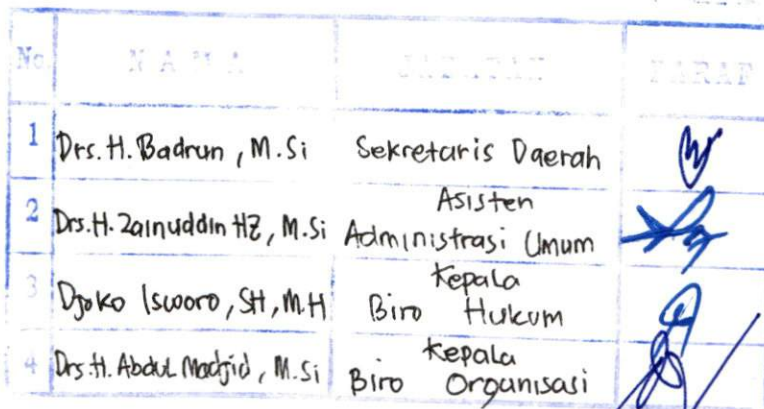 No N A M A JABATAN PARAF
1 Drs. H. Badrun, M.Si Sekretaris Daerah
2 Drs. H. Zainuddin HZ, M.Si Asisten
Administrasi Umum
3 Djoko Isworo, SH, M.H Kepala
Biro Hukum
4 Drs. H. Abdul Madjid, M.Si Kepala
Biro Organisasi